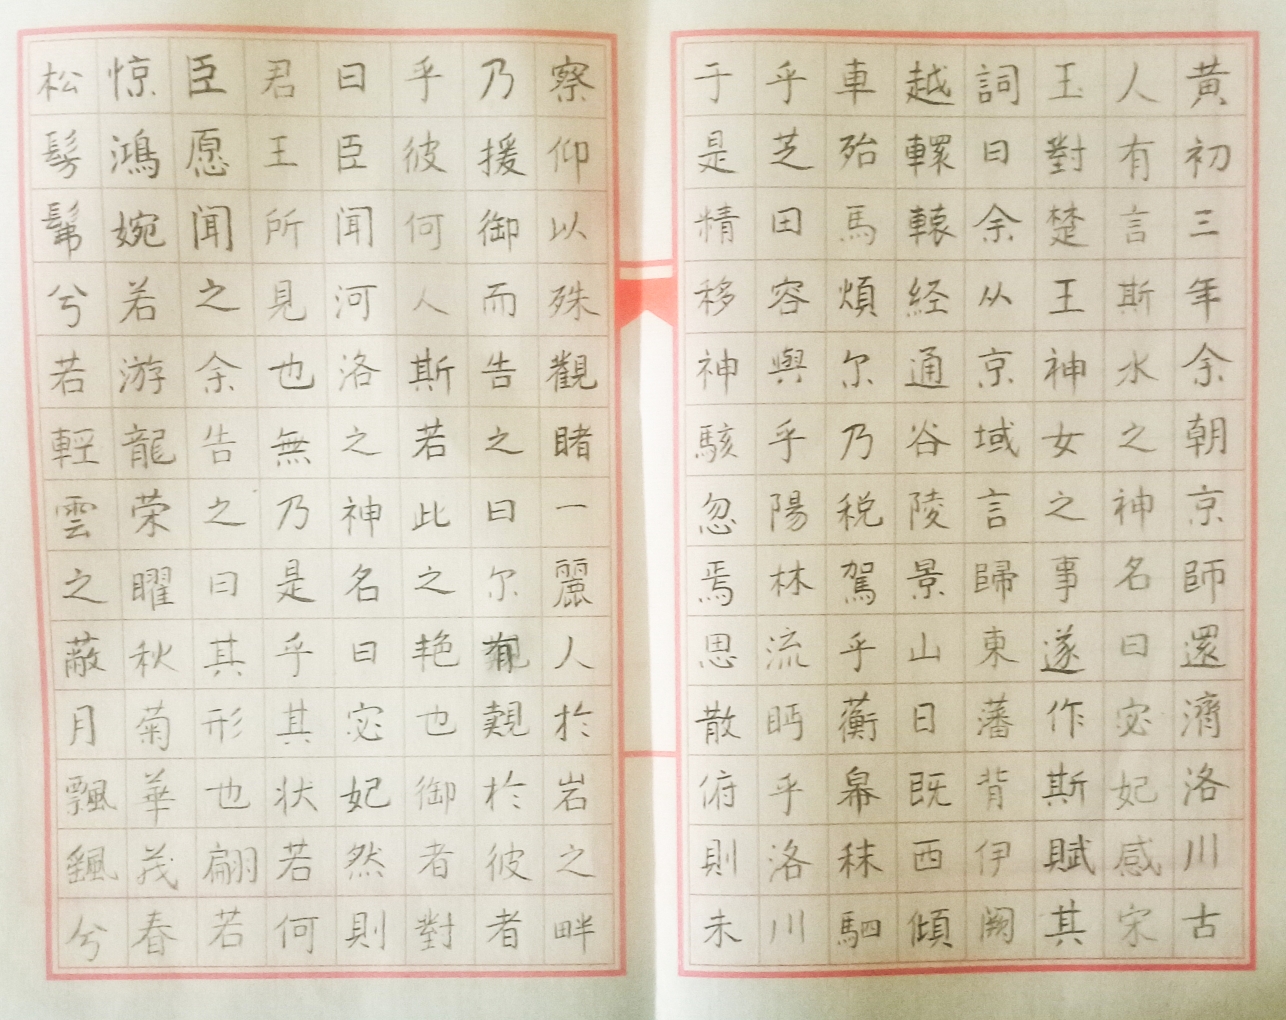 黄初三年余朝京師還濟洛川古
人有言斯水之神名曰宓妃感宋
玉對楚王神女之事遂作斯賦其
詞曰余从京域言歸東藩背伊阙
越轘轅経通谷陵景山日既西傾
車殆馬煩尔乃税駕乎蘅皋秣駟
乎芝田容與乎陽林流眄乎洛川
于是精移神駭忽焉思散俯則未
察仰以殊觀睹一麗人於岩之畔
乃援御而告之曰尔有觀於彼者
乎彼何人斯若此之艳也御者對
曰臣闻河洛之神名曰宓妃然則
君王所見也無乃是乎其状若何
臣愿闻之余告之曰其形也翩若
惊鴻婉若游龍荣曜秋菊華茂春
松髣髴兮若輕雲之蔽月飄颻兮